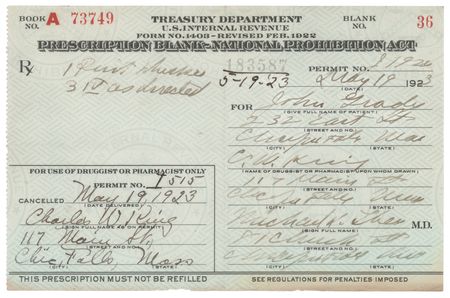 BOOK No. A 73749
TREASURY DEPARTMENT
U.S. INTERNAL REVENUE
FORM NO. 1403-REVISED FEB. 1922
BLANK No. 36
PRESCRIPTION BLANK-NATIONAL PROHIBITION ACT
Rx
183587
PERMIT NO.
1 Pint
5-19-23
May 19 1923
(DATE)
3 as directed
FOR John Grady
(GIVE FULL NAME OF PATIENT)
East St
(STREET AND NO.)
(CITY) (STATE)
C.W. King
(NAME OF DRUGGIST OR PHARMACIST UPON WHOM DRAWN)
117 Main St
(STREET AND NO.)
(CITY) (STATE)
M.D.
(STREET AND NO.)
(CITY) (STATE)
FOR USE OF DRUGGIST OR PHARMACIST ONLY
PERMIT NO. I 515
CANCELLED May 19 1923
(DATE DELIVERED)
Charles W. King
(SIGN FULL NAME AS ON PERMIT)
117 Main St,
(STREET AND NO.)
Chic. Falls Mass
(CITY) (STATE)
THIS PRESCRIPTION MUST NOT BE REFILLED
SEE REGULATIONS FOR PENALTIES IMPOSED